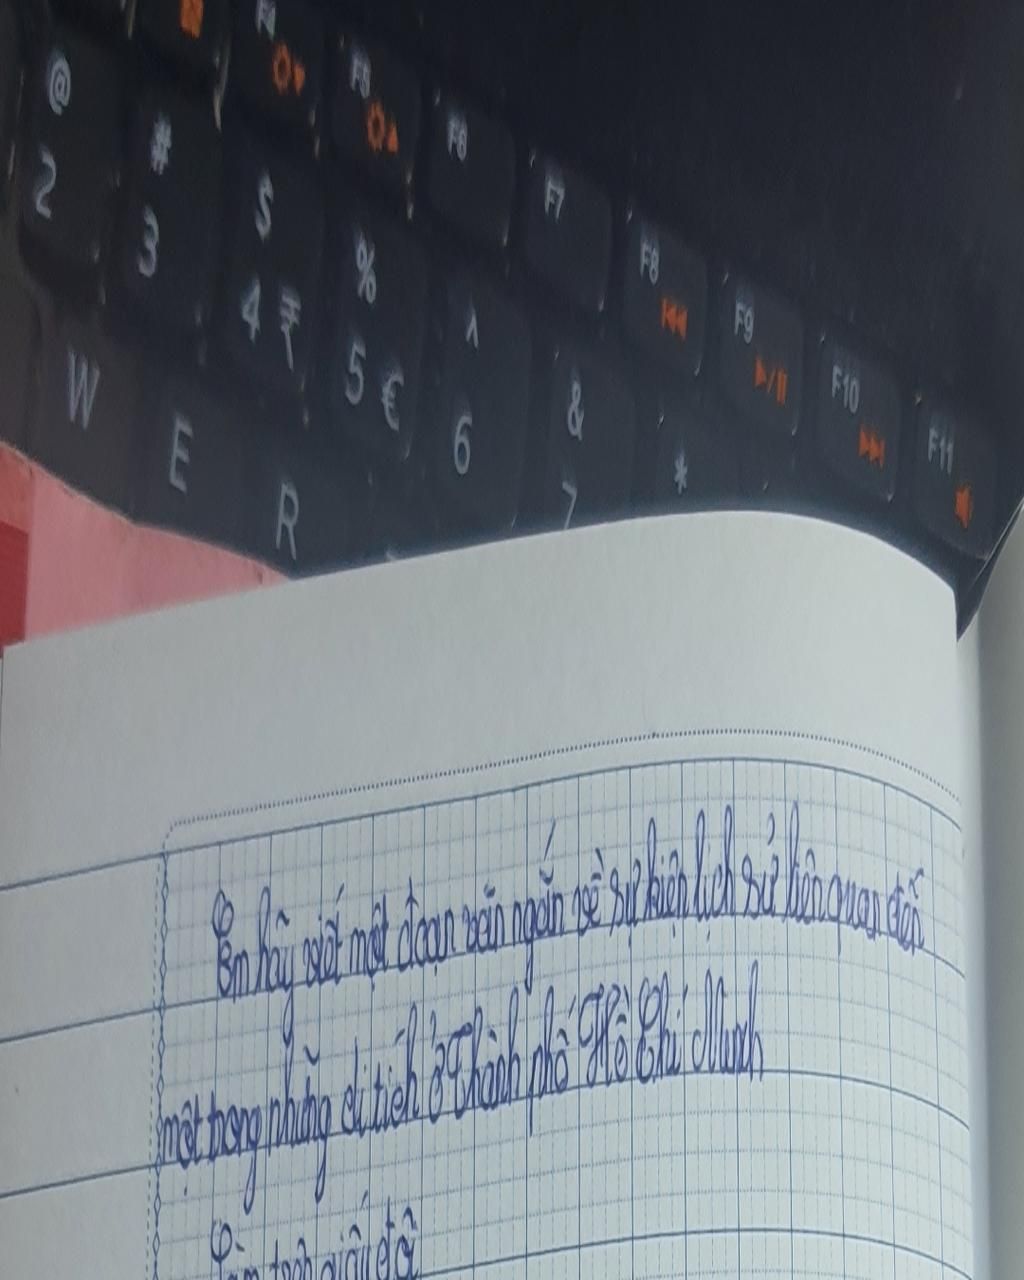 @ # $ % ^ & *
2 3 4 ₹ 5 € 6 7
F4 F5 F6 F7 F8 F9 F10 F11
W E R
Em hãy viết một đoạn văn ngắn về sự kiện lịch sử liên quan đến
một trong những di tích ở Thành phố Hồ Chí Minh
Làm trên giấy đôi